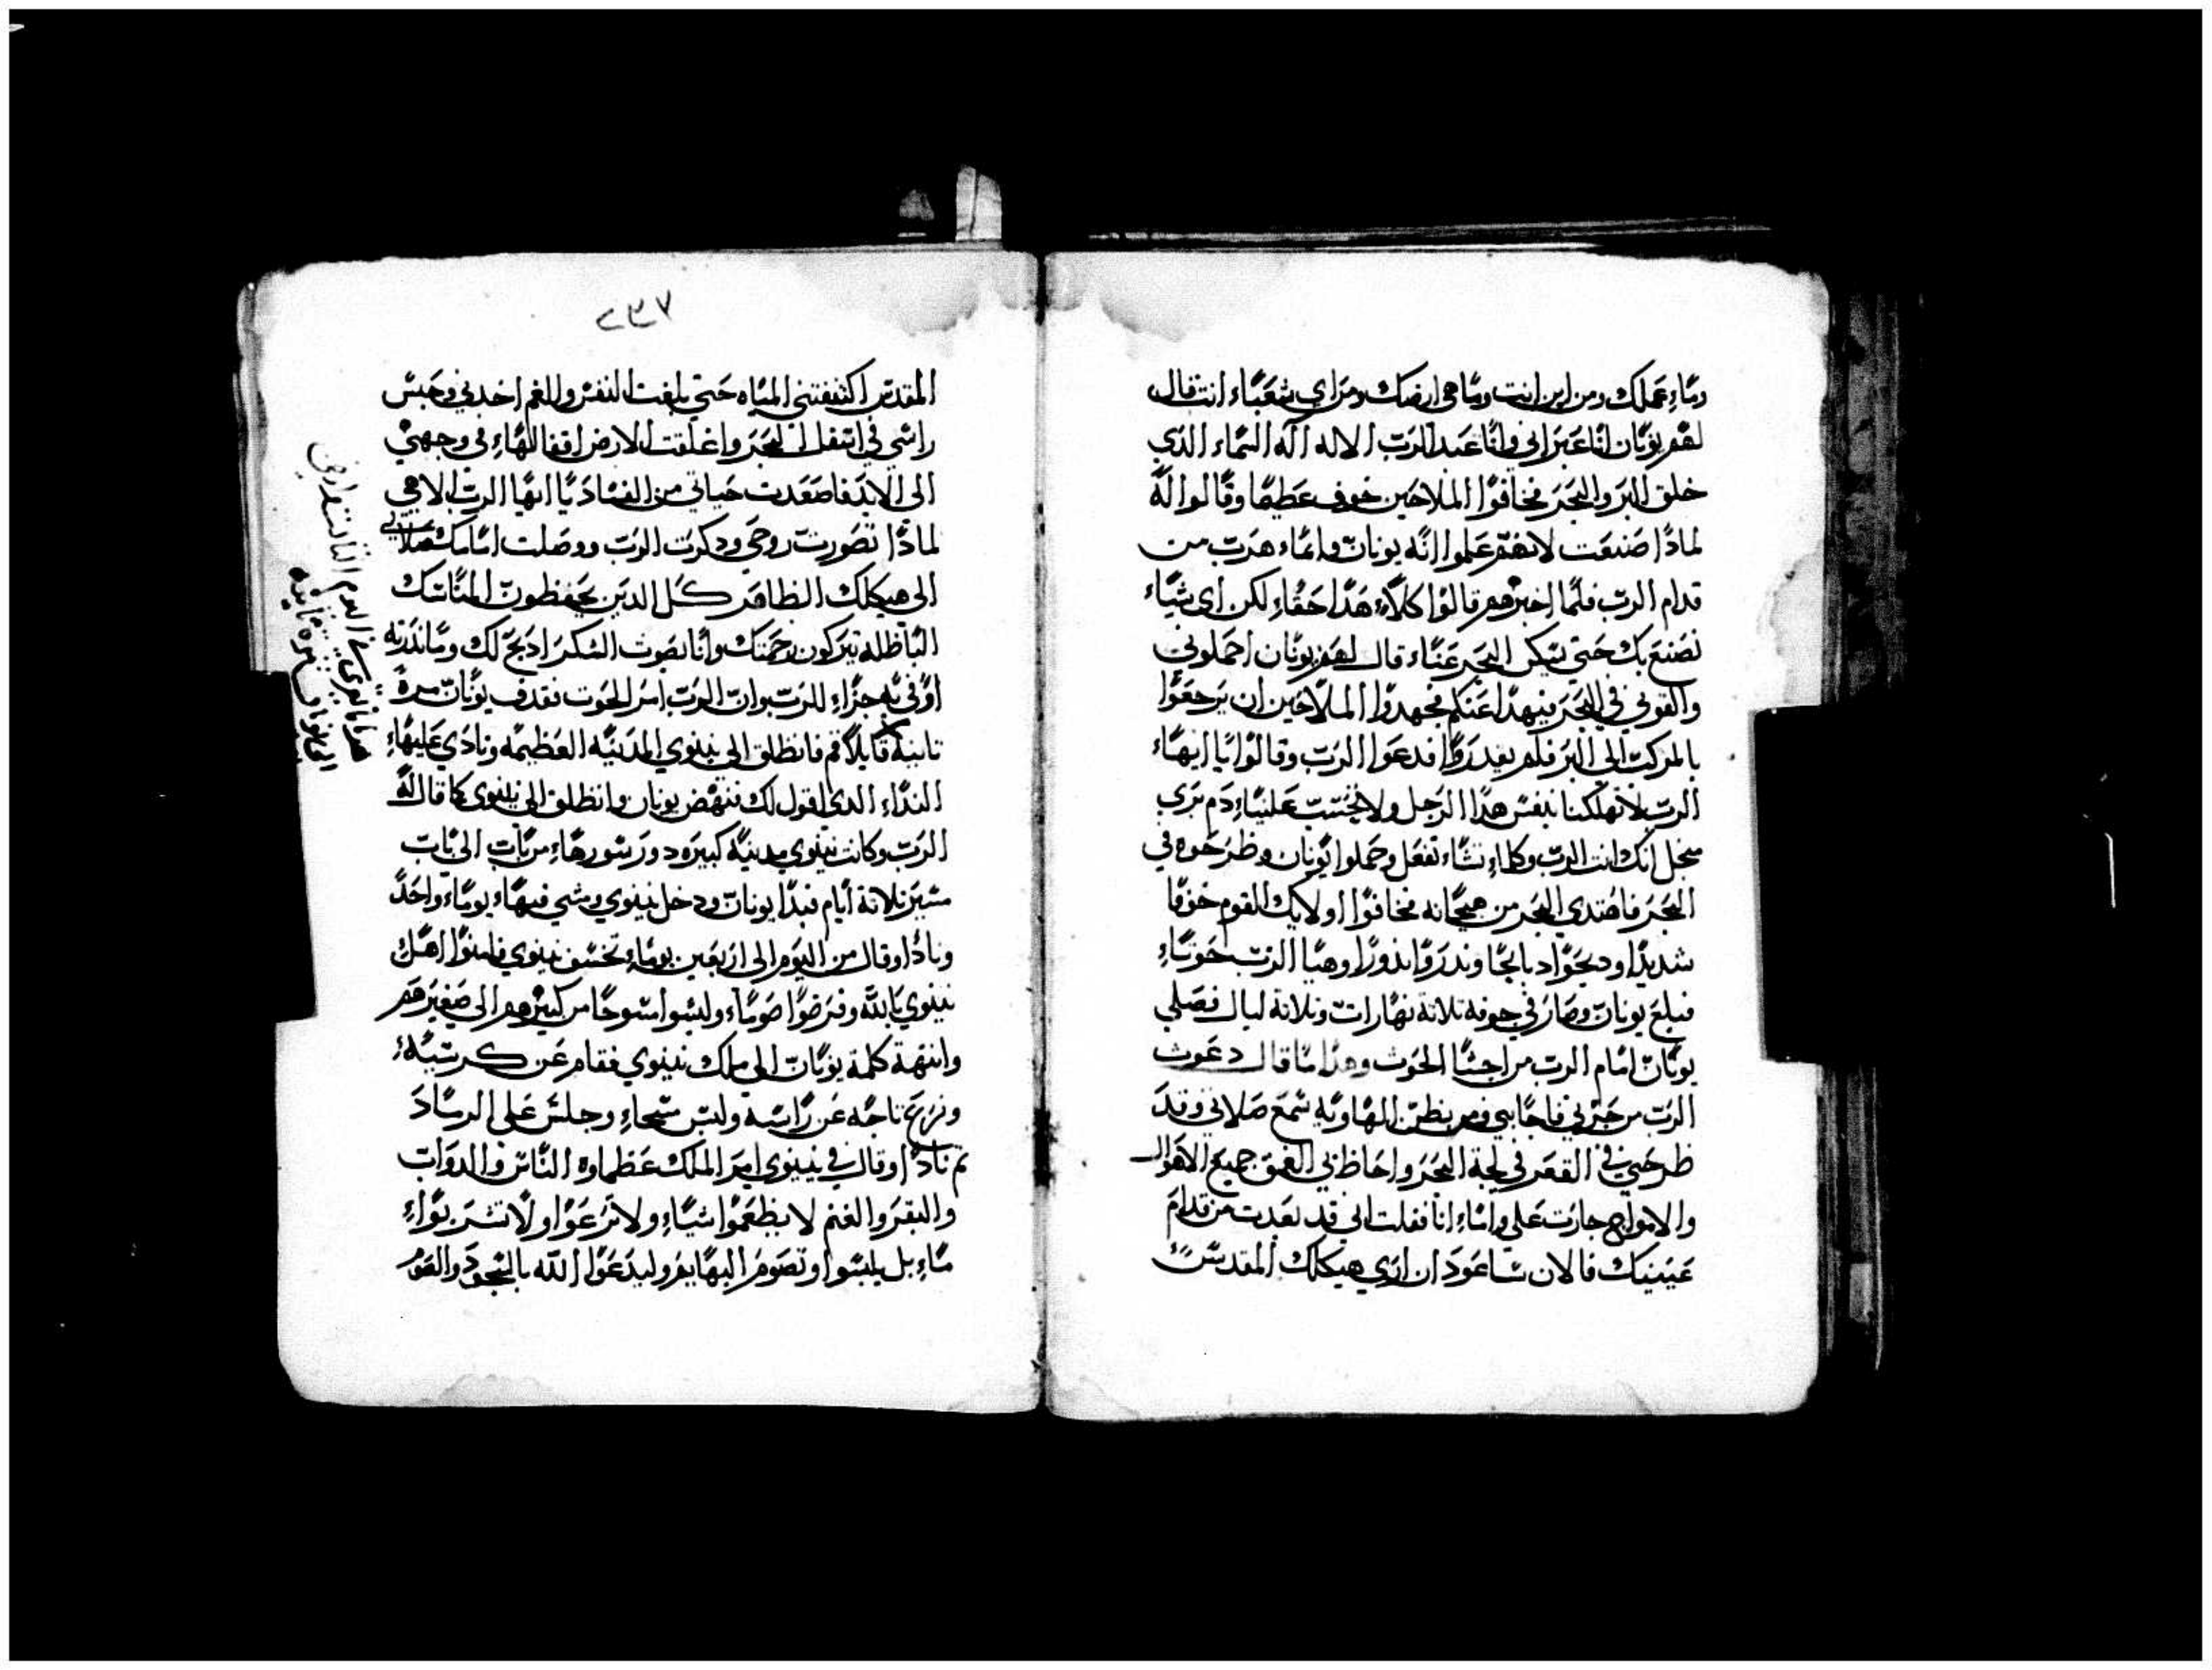 وماء عملك ومن اين انت وما هي ارضك ومن اي شعباء انت فقال
لهم يونان انا عبراني وانا عبد الرب الاله اله السماء الذي
خلق البر والبحر فخافوا الملاحين خوف عظيما وقالوا له
لماذا صنعت لانهم علموا انه يونان وانماء هرب من
قدام الرب فلما اخبرهم قالوا كلاء هذا حقاء لكن اي شياء
نصنع بك حتى يسكن البحر عناء قال لهم يونان احملوني
والقوني في البحر فيهدا عنكم فجهدوا الملاحين ان يرجعوا
بالمركب الى البر فلم يقدروا فدعوا الرب وقالوا يا ايهاء
الرب لا تهلكنا بنفس هذا الرجل ولا تحتسب علينا دم بري
انك انت الرب وكلماء تشاء تفعل وحملوا يونان وطرحوه في
البحر فاهتدي البحر من هيجانه فخافوا اولايك القوم خوفا
شديدا ودبحوا دبايحا وندروا ندورا وهيا الرب حوتاء
فبلع يونان وصار في جوفه تلاتة نهارات وتلاتة ليال فصلي
يونان امام الرب من احشا الحوت وهذا ما قال دعوت
الرب من حزني فاجابني ومن بطن الهاويه سمع صلاتي وقد
طرحني في القعر في لجة البحر واحاط بي العمق جميع الاهوال
والامواج جازت علي واماء انا فقلت اني قد بعدت من قدام
عينيك فالان ساعود ان اري هيكلك المقدس
٢٣٧
المقدس اكتنفتني المياه حتي بلغت النفس والغم اخدني وحبس
راسي في اسفل البحر واغلقت الارض اقفالهاء في وجهي
الى الابد فاصعدت حياتي من الفساد يا ايها الرب الاهي
لماذا تصورت روحي ودكرت الرب ووصلت امامك صلاتي
الى هيكلك الطاهر كل الدين يحفظون المناسك
الباطله يتركون رحمتك وانا بصوت الشكر ادبح لك وما ندرته
اوفي به جزاء للرب وان الرب امر الحوت فقدف يونان مرة
تانية قايلا قم فانطلق الى نينوي المدينه العظيمه ونادي عليهاء
النداء الدي اقول لك فنهض يونان وانطلق الى نينوي كما قال له
الرب وكانت نينوي مدينه كبيره دور سورهاء من باب الى باب
مسير تلاتة ايام فبدا يونان ودخل نينوي ومشي فيهاء يوماء واحد
ونادا وقال من اليوم الى اربعين يوماء تخسف نينوي فامنوا اهل
نينوي بالله وفرضوا صوماء ولبسوا مسوحا من كبيرهم الى صغيرهم
وانتهة كلمة يونان الى ملك نينوي فقام عن كرسيه
ونزع تاجه عن راسه ولبس مسحاء وجلس على الرماد
تم نادا وقال في نينوي امر الملك عظماوه الناس والدواب
والبقر والغنم لا يطعموا شياء ولا ترعوا ولا تشربواء
ماء بل يلبسوا وتصوم البهايم وليدعوا الله بالسجود والصوم